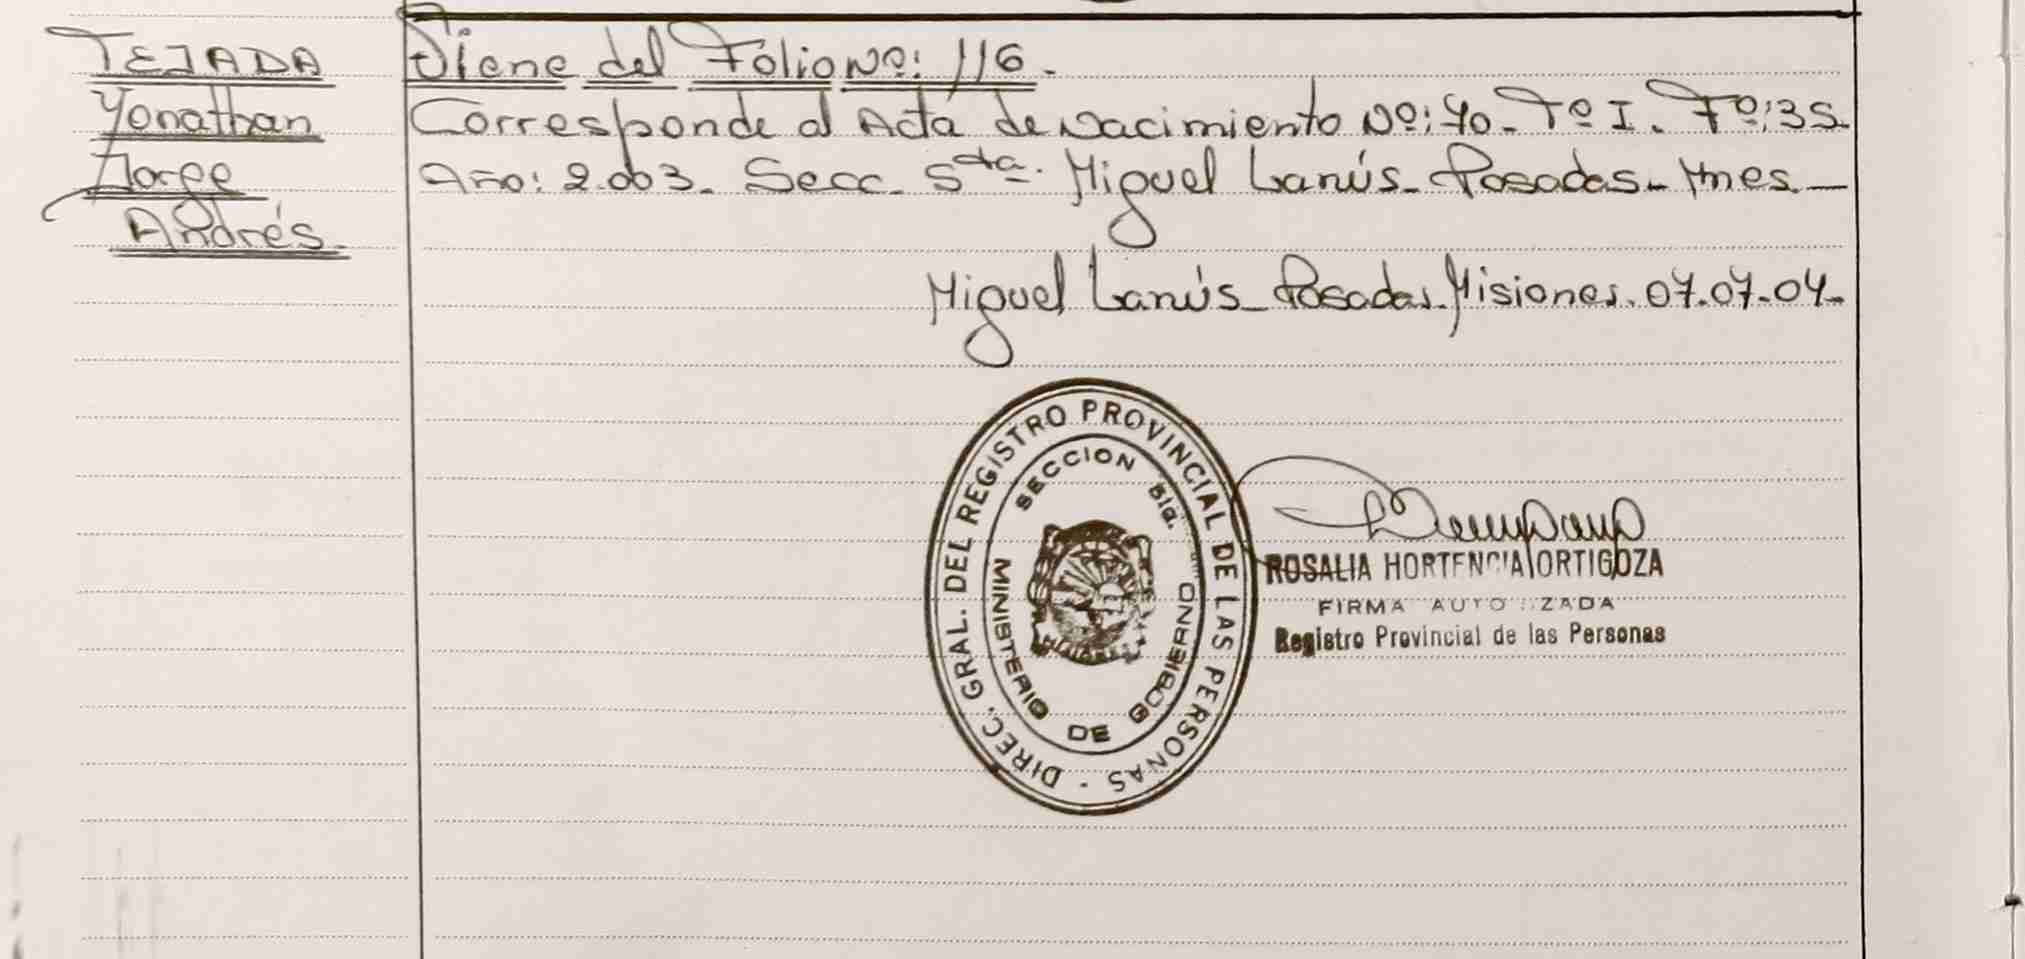 TEJADA
Yonathan
Jorge
Andrés.
Viene del Folio Nº: 116.
Corresponde al Acta de Nacimiento Nº: 40. Tº I. Fº: 35.
Año: 2.003. Secc. 5ta. Miguel Lanús - Posadas - Mnes.
Miguel Lanús - Posadas. Misiones. 07.07.04.
DIREC. GRAL. DEL REGISTRO PROVINCIAL DE LAS PERSONAS -
SECCION
MINISTERIO DE GOBIERNO
ROSALIA HORTENCIA ORTIGOZA
FIRMA AUTORIZADA
Registro Provincial de las Personas